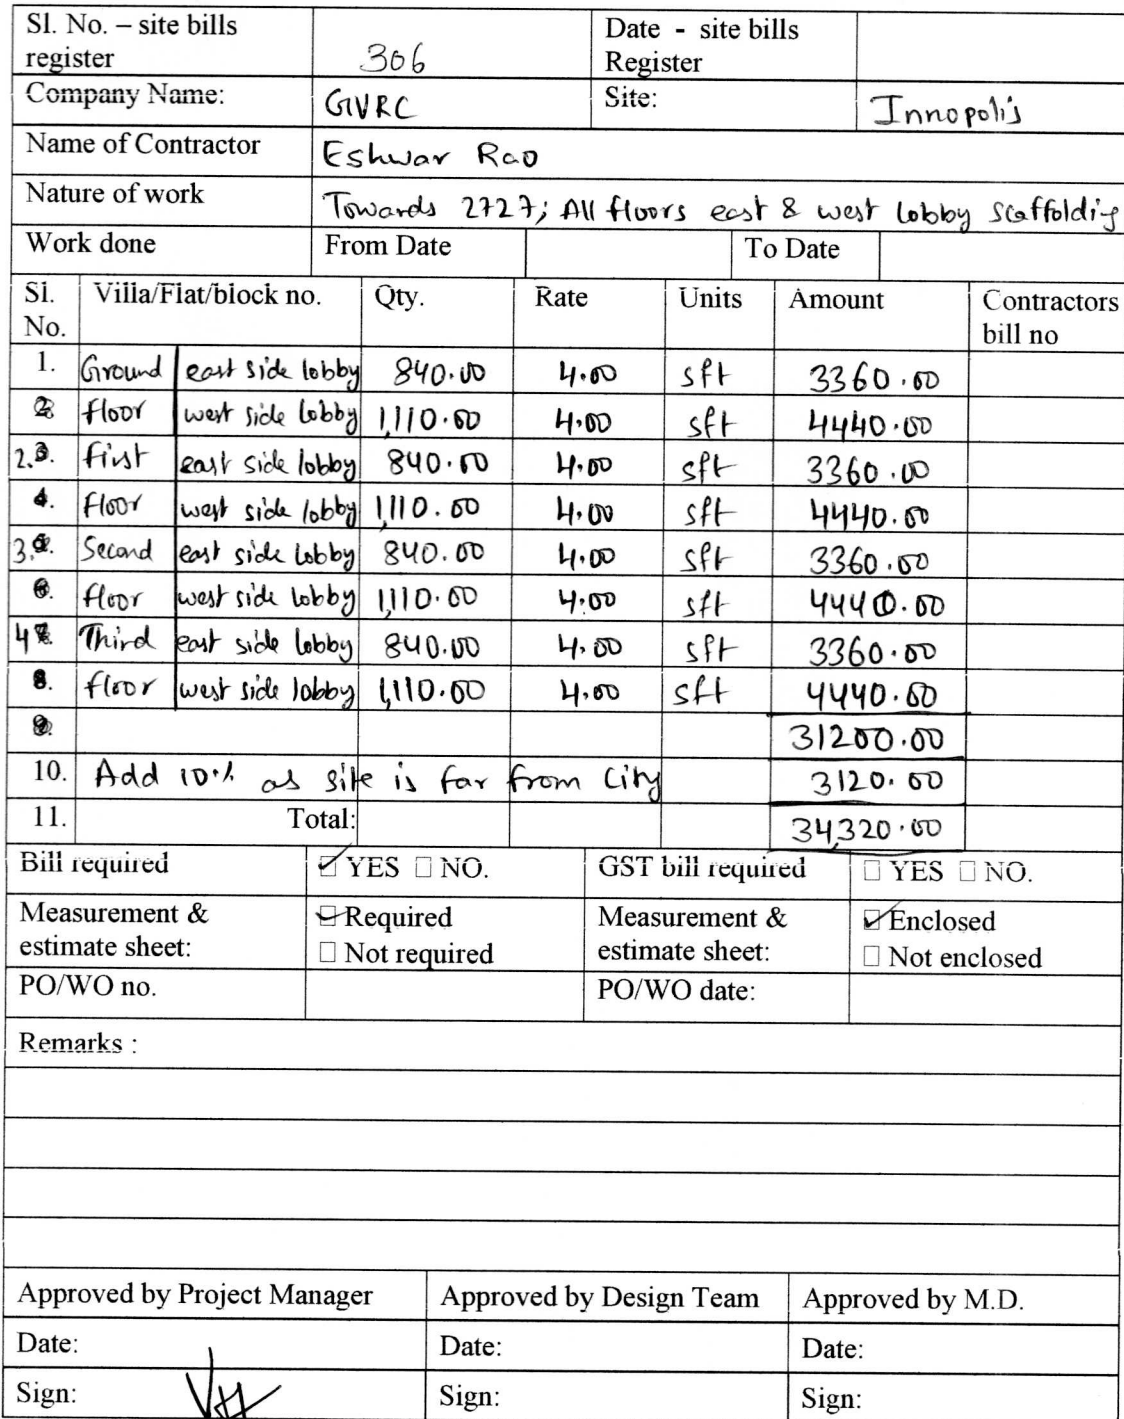 Sl. No. – site bills register 306 Date - site bills Register
Company Name: GVRC Site: Innopolis
Name of Contractor Eshwar Rao
Nature of work Towards 2727; All floors east & west lobby scaffolding
Work done From Date To Date
Sl. No. Villa/Flat/block no. Qty. Rate Units Amount Contractors bill no
1. Ground east side lobby 840.00 4.00 sft 3360.00
floor west side lobby 1,110.00 4.00 sft 4440.00
2. First east side lobby 840.00 4.00 sft 3360.00
floor west side lobby 1,110.00 4.00 sft 4440.00
3. Second east side lobby 840.00 4.00 sft 3360.00
floor west side lobby 1,110.00 4.00 sft 4440.00
4 Third east side lobby 840.00 4.00 sft 3360.00
8. floor west side lobby 1,110.00 4.00 sft 4440.00
31200.00
10. Add 10% as site is far from city 3120.00
11. Total: 34,320.00
Bill required ☑ YES ☐ NO. GST bill required ☐ YES ☐ NO.
Measurement & estimate sheet: ☑ Required ☐ Not required Measurement & estimate sheet: ☑ Enclosed ☐ Not enclosed
PO/WO no. PO/WO date:
Remarks :
Approved by Project Manager Approved by Design Team Approved by M.D.
Date: Date: Date:
Sign: Sign: Sign: